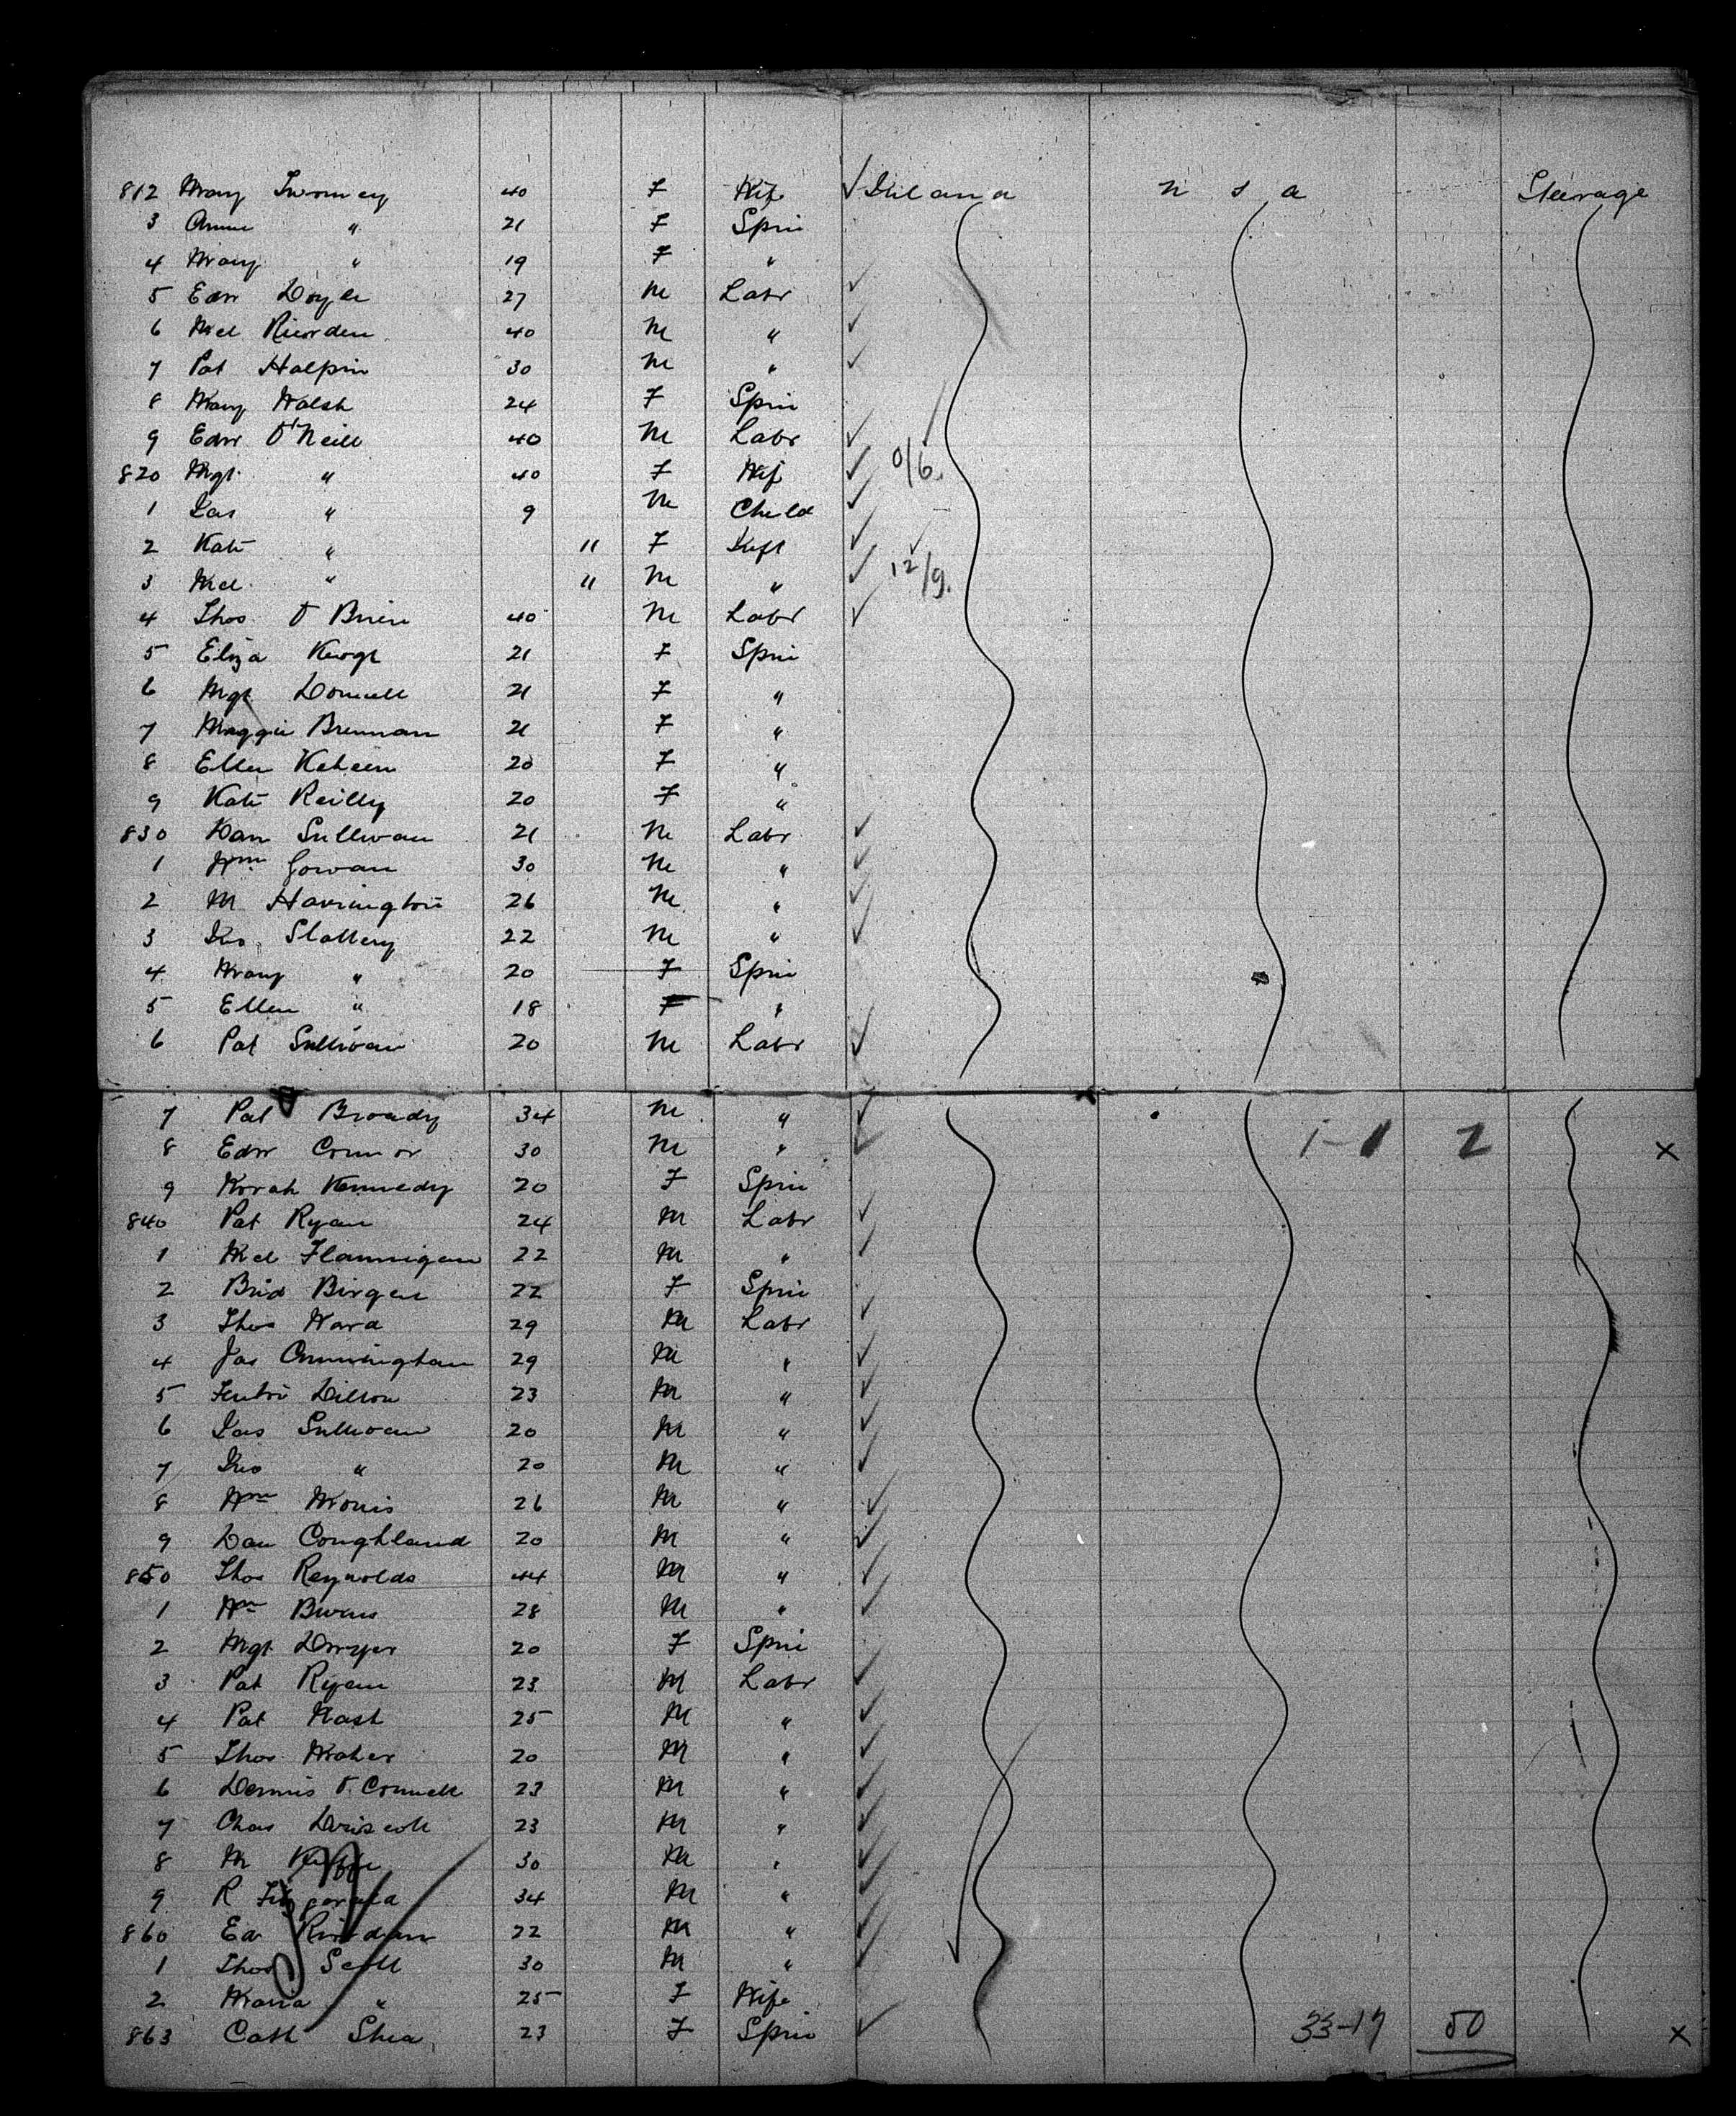 812 Mary Twomey 40 F Wife ✓ Ireland U S A Steerage
3 Annie " 21 F Spin
4 Mary " 19 F "
5 Edw Doyle 27 M Labr ✓
6 Mcl Riorden 40 M " ✓
7 Pat Halpin 30 M " ✓
8 Mary Walsh 24 F Spin
9 Edw O'Neill 40 M Labr ✓
820 Mgt " 40 F Wife ✓ 0/6.
1 Jas " 9 M Child ✓
2 Kate " 11 F Inft ✓
3 Mcl " 11 M " ✓ 12/9.
4 Thos O Brien 40 M Labr ✓
5 Eliza Keogh 21 F Spin
6 Mgt Donnell 21 F "
7 Maggie Brennan 21 F "
8 Ellen 20 F "
9 Kate Reilly 20 F "
830 Dan Sullivan 21 M Labr ✓
1 Wm Gowan 30 M " ✓
2 M Harrington 26 M " ✓
3 Jno Slattery 22 M " ✓
4 Mary " 20 F Spin
5 Ellen " 18 F "
6 Pat Sullivan 20 M Labr ✓
7 Pat Broady 34 M " ✓
8 Edw Connor 30 M " ✓ 1-1 2 x
9 Norah Kennedy 20 F Spin
840 Pat Ryan 24 M Labr ✓
1 Mcl Flannigan 22 M " ✓
2 Brid Birgen 22 F Spin
3 Thos Ward 29 M Labr ✓
4 Jas Cunningham 29 M " ✓
5 Dillon 23 M " ✓
6 Jas Sullivan 20 M " ✓
7 Jno " 20 M " ✓
8 Wm Morris 26 M " ✓
9 Dan Coughland 20 M " ✓
850 Thos Reynolds 44 M " ✓
1 Wm 28 M " ✓
2 Mgt Dwyer 20 F Spin
3 Pat Ryan 23 M Labr ✓
4 Pat Nash 25 M " ✓
5 Thos Maher 20 M " ✓
6 Dennis O. Connell 23 M " ✓
7 Chas Driscoll 23 M " ✓
8 M 30 M " ✓
9 R Fitzgerald 34 M " ✓
860 Ed Riordan 22 M " ✓
1 Thos Scott 30 M " ✓
2 Maria " 25 F Wife
863 Cath Shea 23 F Spin ✓ 33-17 50 x